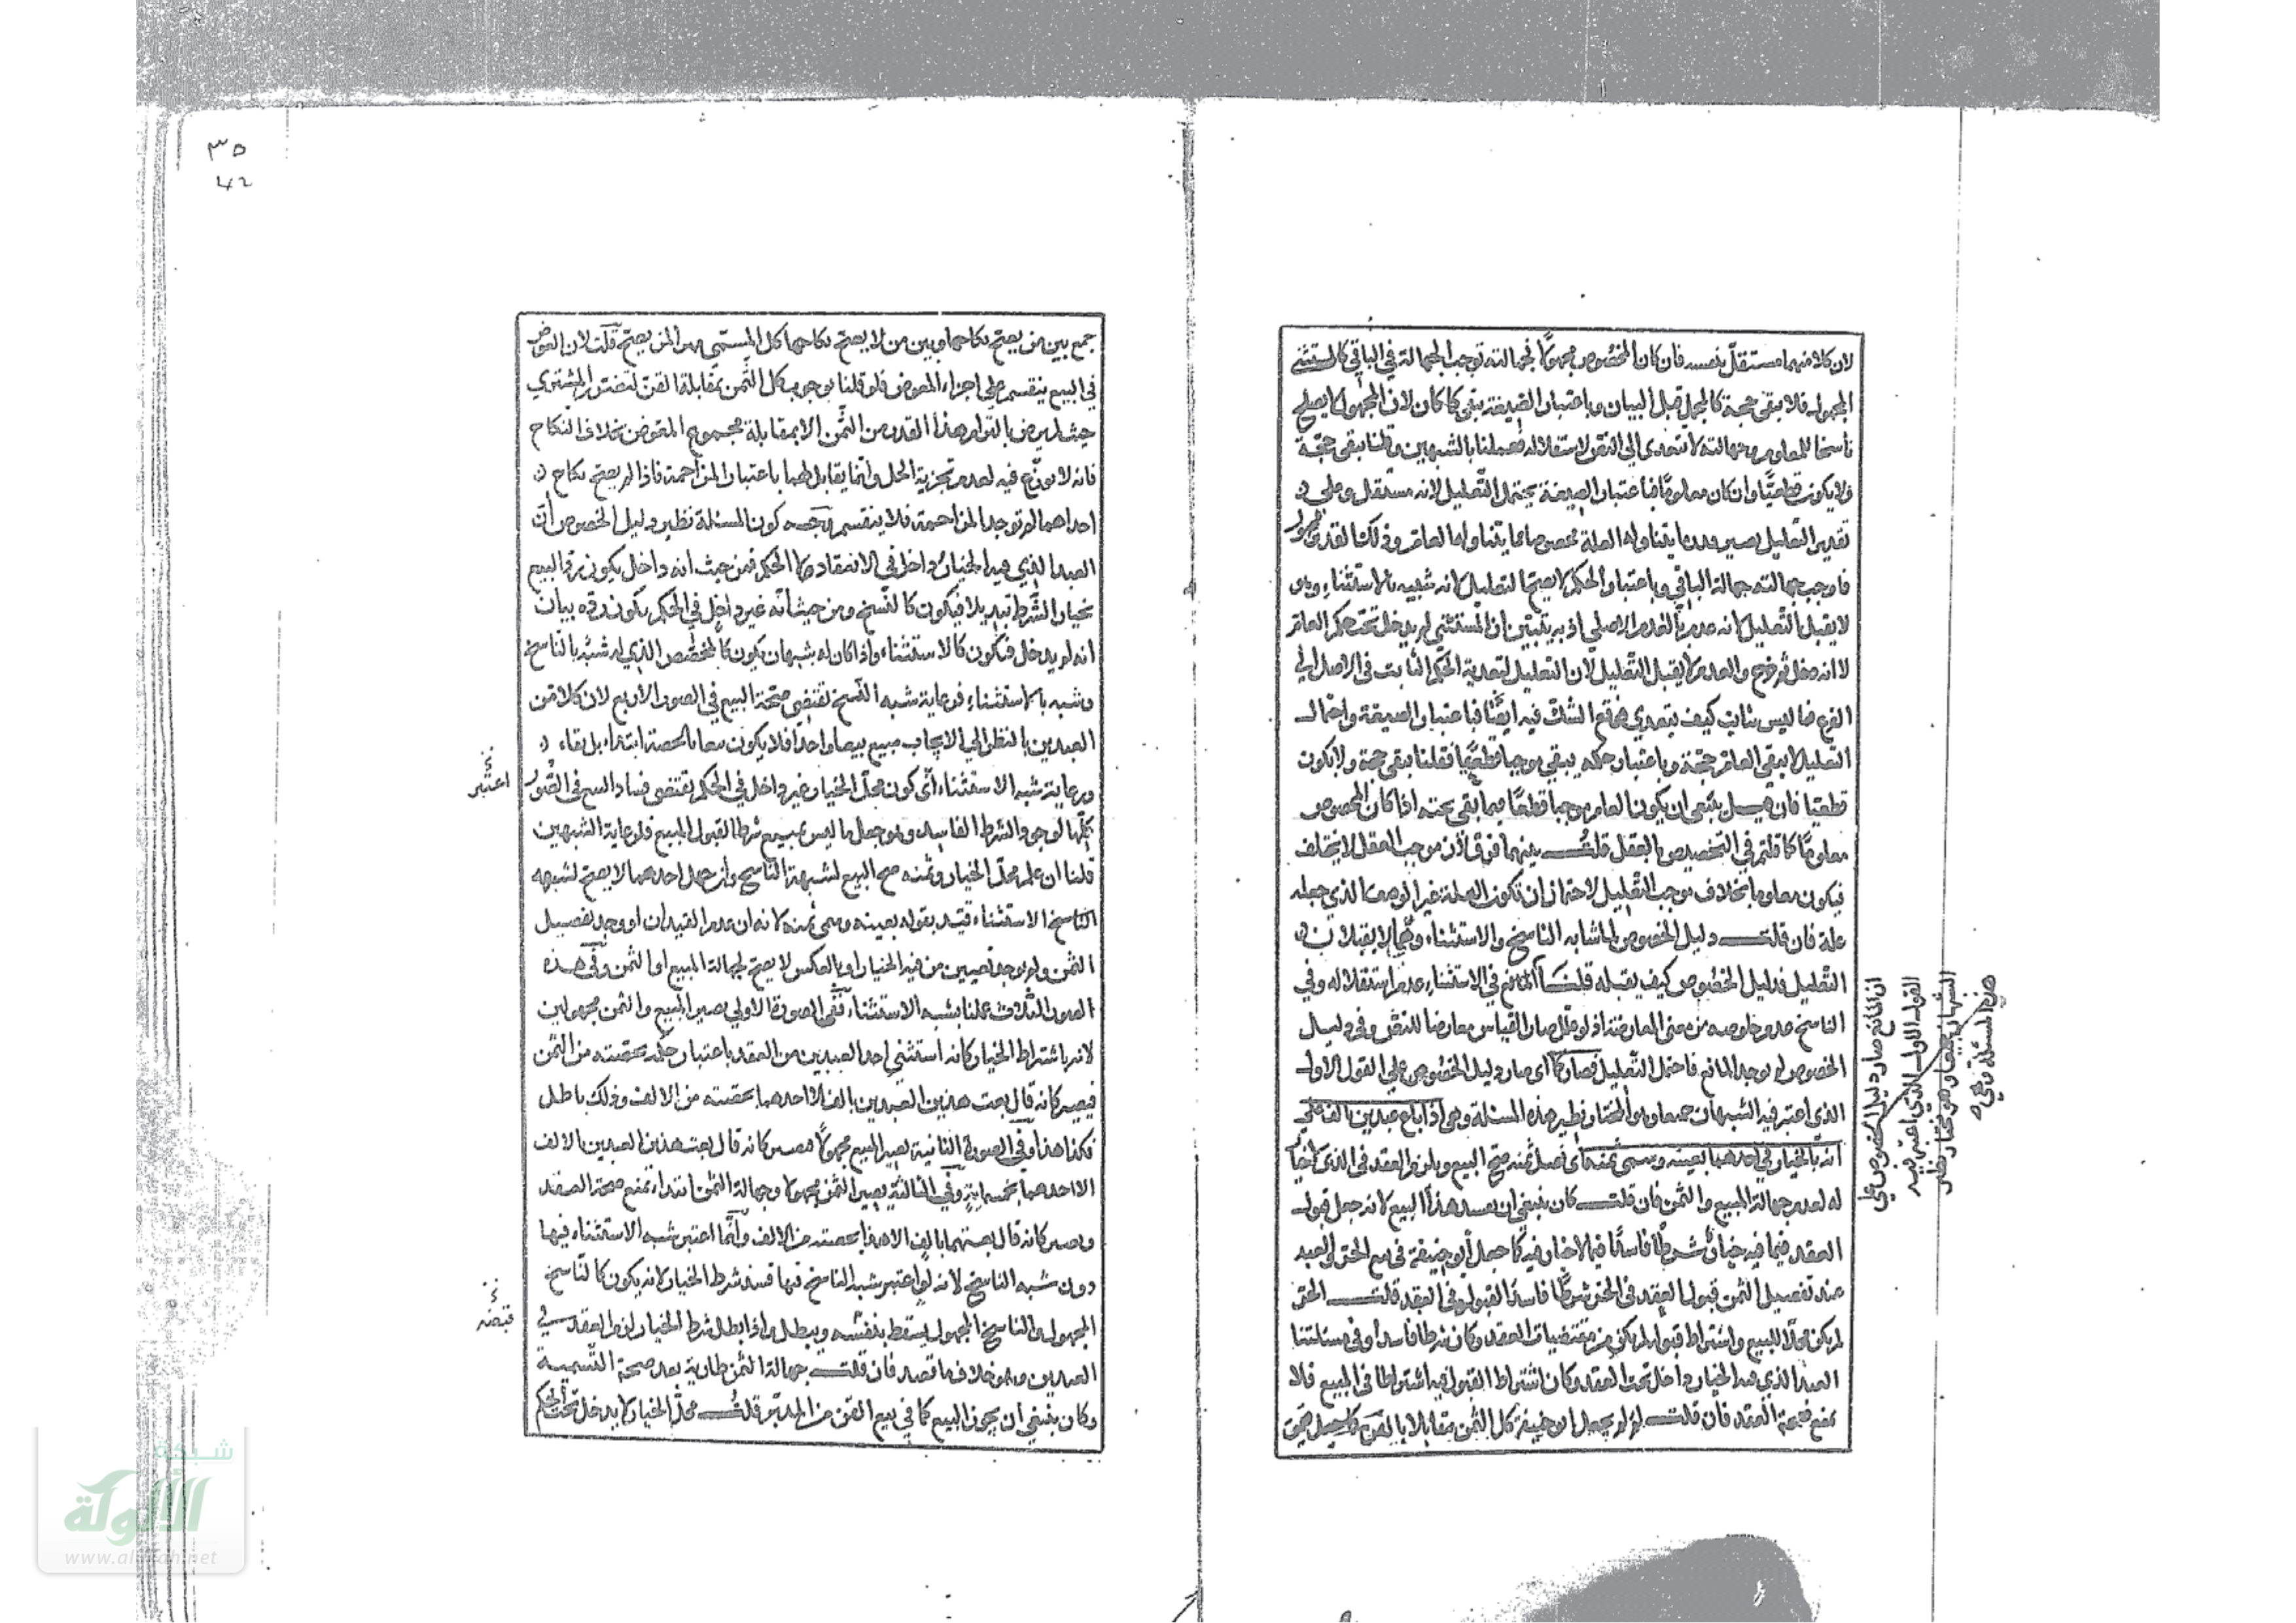 لان كلا منهما مستقل بنفسه فان كان المخصوص مجهولا فجهالته توجب الجهالة في الباقي كالمستثنى
المجهول فلا يبقى حجة كالمجمل قبل البيان وباعتبار الصيغة يبقى كما كان لان المجهول لا يصلح
ناسخا للمعلوم وجهالته لا تتعدى الى النص لاستقلاله فعملنا بالشبهين وقلنا يبقى حجة
ولا يكون قطعيا وان كان معلوما فباعتبار الصيغة يحتمل التعليل لانه مستقل وعلى
تقدير التعليل يصير قدر ما يتناوله العلة مخصوصا مما يتناوله العام وذلك القدر مجهول
فاوجب جهالته جهالة الباقي وباعتبار الحكم لا يصح التعليل لانه شبيه بالاستثناء وهو
لا يقبل التعليل لانه عدم بالعدم الاصلي اذ به يتبين ان المستثنى لم يدخل تحت حكم العام
لا انه دخل ثم خرج والعدم لا يقبل التعليل لان التعليل لتعدية الحكم الثابت في الاصل الى
الفرع فما ليس بثابت كيف يتعدى فوقع الشك فيه ايضا فباعتبار الصيغة واحتمال
التعليل لا يبقى العام حجة وباعتبار حكمه يبقى موجبا قطعيا فقلنا يبقى حجة ولا يكون
قطعيا فان قيل ينبغي ان يكون العام موجبا قطعا فيما بقي تحته اذا كان المخصوص
معلوما كما قلتم في التخصيص بالعقل قلت بينهما فرق لان موجب العقل لا يختلف
فيكون معلوما بخلاف موجب التعليل لاحتمال ان تكون العلة غير الوصف الذي جعله
علة فان قلت دليل الخصوص لما شابه الناسخ والاستثناء وهما لا يقبلان
التعليل فدليل الخصوص كيف يقبله قلت المانع في الاستثناء عدم استقلاله وفي
الناسخ عدم خلوصه من معنى المعارضة اذ لو علل صار القياس معارضا للنص وفي دليل
الخصوص لم يوجد المانع فاحتمل التعليل فصار كما اى صار دليل الخصوص على القول الاول
الذي اعتبر فيه الشبهان جميعا وهو المختار نظير هذه المسئلة وهي اذا باع عبدين بالف على
انه بالخيار في احدهما بعينه وسمى ثمنه اى فصل ثمنه صح البيع ويلزم العقد في الذي لا خيار
له لعدم جهالة المبيع والثمن فان قلت كان ينبغي ان يفسد هذا البيع لانه جعل قبول
العقد فيما فيه خيار شرطا فاسدا فيما لا خيار فيه كما جعل أبو حنيفة في بيع الحر والعبد
عند تفصيل الثمن قبول العقد في الحر شرطا فاسدا لقبوله في العقد قلت الحر
لم يكن محلا للبيع واشتراط قبوله لم يكن من مقتضيات العقد وكان شرطا فاسدا وفي مسئلتنا
العبد الذي فيه الخيار داخل تحت العقد وكان اشتراط القبول فيه اشتراطا في المبيع فلا
يمنع صحة العقد فان قلت لم لم يجعل ابو حنيفة كل الثمن مقابلا بالقن كما جعل فيمن
ان المانع صار دليل الخصوص على
القول الاول الذي اعتبر فيه
الشبهان جميعا وهو المختار نظير
هذه المسئلة وهي
جمع بين من يصح نكاحها وبين من لا يصح نكاحها كل المسمى مهرا لمن يصح قلت لان العوض
في البيع ينقسم على اجزاء المعوض فلو قلنا بوجوب كل الثمن بمقابلة القن لتضرر المشتري
حيث لم يرض بالتزام هذا القدر من الثمن الا بمقابلة مجموع المعوض بخلاف النكاح
فانه لا يوزع فيه لعدم تجزية الحل وانما يقابل لهما باعتبار المزاحمة فاذا لم يصح نكاح
احداهما لم توجد المزاحمة فلا ينقسم وجه كون المسئلة نظير دليل الخصوص أن
العبد الذي فيه الخيار داخل في الانعقاد لا الحكم فمن حيث انه داخل يكون رد البيع
بخيار الشرط تبديلا فيكون كالنسخ ومن حيث أنه غير داخل في الحكم يكون رده بيان
انه لم يدخل فيكون كالاستثناء واذا كان له شبهان يكون كالمخصص الذي له شبه بالناسخ
وشبه بالاستثناء فرعاية شبه النسخ تقتضي صحة البيع في الصور الاربع لان كلا من
العبدين بالنظر الى الايجاب مبيع بيعا واحدا فلا يكون بيعا بالحصة ابتداء بل بقاء
ورعاية شبه الاستثناء أى كون محل الخيار غير داخل في الحكم يقتضي فساد البيع في الصور
كلها لوجود الشرط الفاسد وهو جعل ما ليس بمبيع شرطا لقبول المبيع فلرعاية الشبهين
قلنا ان علم محل الخيار وثمنه صح البيع لشبهة الناسخ وان جهل احدهما لا يصح لشبهه
الاستثناء قيد بقوله بعينه وسمى ثمنه لانه ان عدم القيدان او وجد تفصيل
الثمن ولم يوجد تعيين من فيه الخيار او بالعكس لا يصح لجهالة المبيع او الثمن وفى هذه
الصور الثلاث عملنا بشبه الاستثناء ففى الصورة الاولى يصير المبيع والثمن مجهولين
لانه باشتراط الخيار كانه استثنى احد العبدين من العقد باعتبار حكمه بحصته من الثمن
فيصير كانه قال بعت هذين العبدين بالف الا احدهما بحصته من الالف وذلك باطل
فكذا هذا وفى الصورة الثانية يصير المبيع مجهولا فيصير كانه قال بعت هذين العبدين بالالف
الا احدهما بخمسماية وفى الثالثة يصير الثمن مجهولا وجهالة الثمن ابتداء تمنع صحة العقد
ويصير كانه قال بعتهما بالف الا هذا بحصته من الالف وانما اعتبر شبه الاستثناء فيها
دون شبه الناسخ لانه لو اعتبر شبه الناسخ فيها فسد شرط الخيار لانه يكون كالناسخ
المجهول والناسخ المجهول يسقط بنفسه ويبطل واذا بطل شرط الخيار لزم العقد في
العبدين وهو خلاف ما قصد فان قلت جهالة الثمن طارية بعد صحة التسمية
وكان ينبغي أن يجوز البيع كما في بيع القن من المدبر قلت محل الخيار لا يدخل تحت الحكم
اعتبر
قبضه
شبكة
الألوكة
www.alukah.net